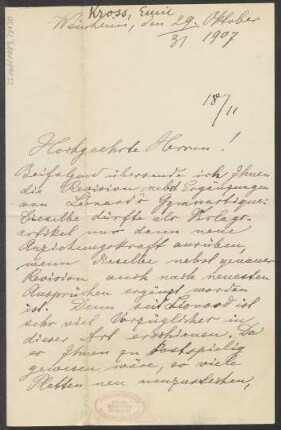 Kross, Emil
Weinheim, den 29. Oktober
31 1907
18/11
Hochgeehrte Herren!
Beifolgend übersende ich Ihnen
die Revision, nebst Ergänzungen
von Léonard's Gymnastique.
Dieselbe dürfte als Verlags-
artikel nur dann neue
Anziehungskraft ausüben,
wenn dieselbe nebst genauer
Revision auch nach neuesten
Ansprüchen ergänzt worden
ist. Denn seit Léonard ist
sehr viel Vorzügliches in
dieser Art erschienen. Da
es Ihnen zu kostspielig
gewesen wäre, so viele
Platten neu